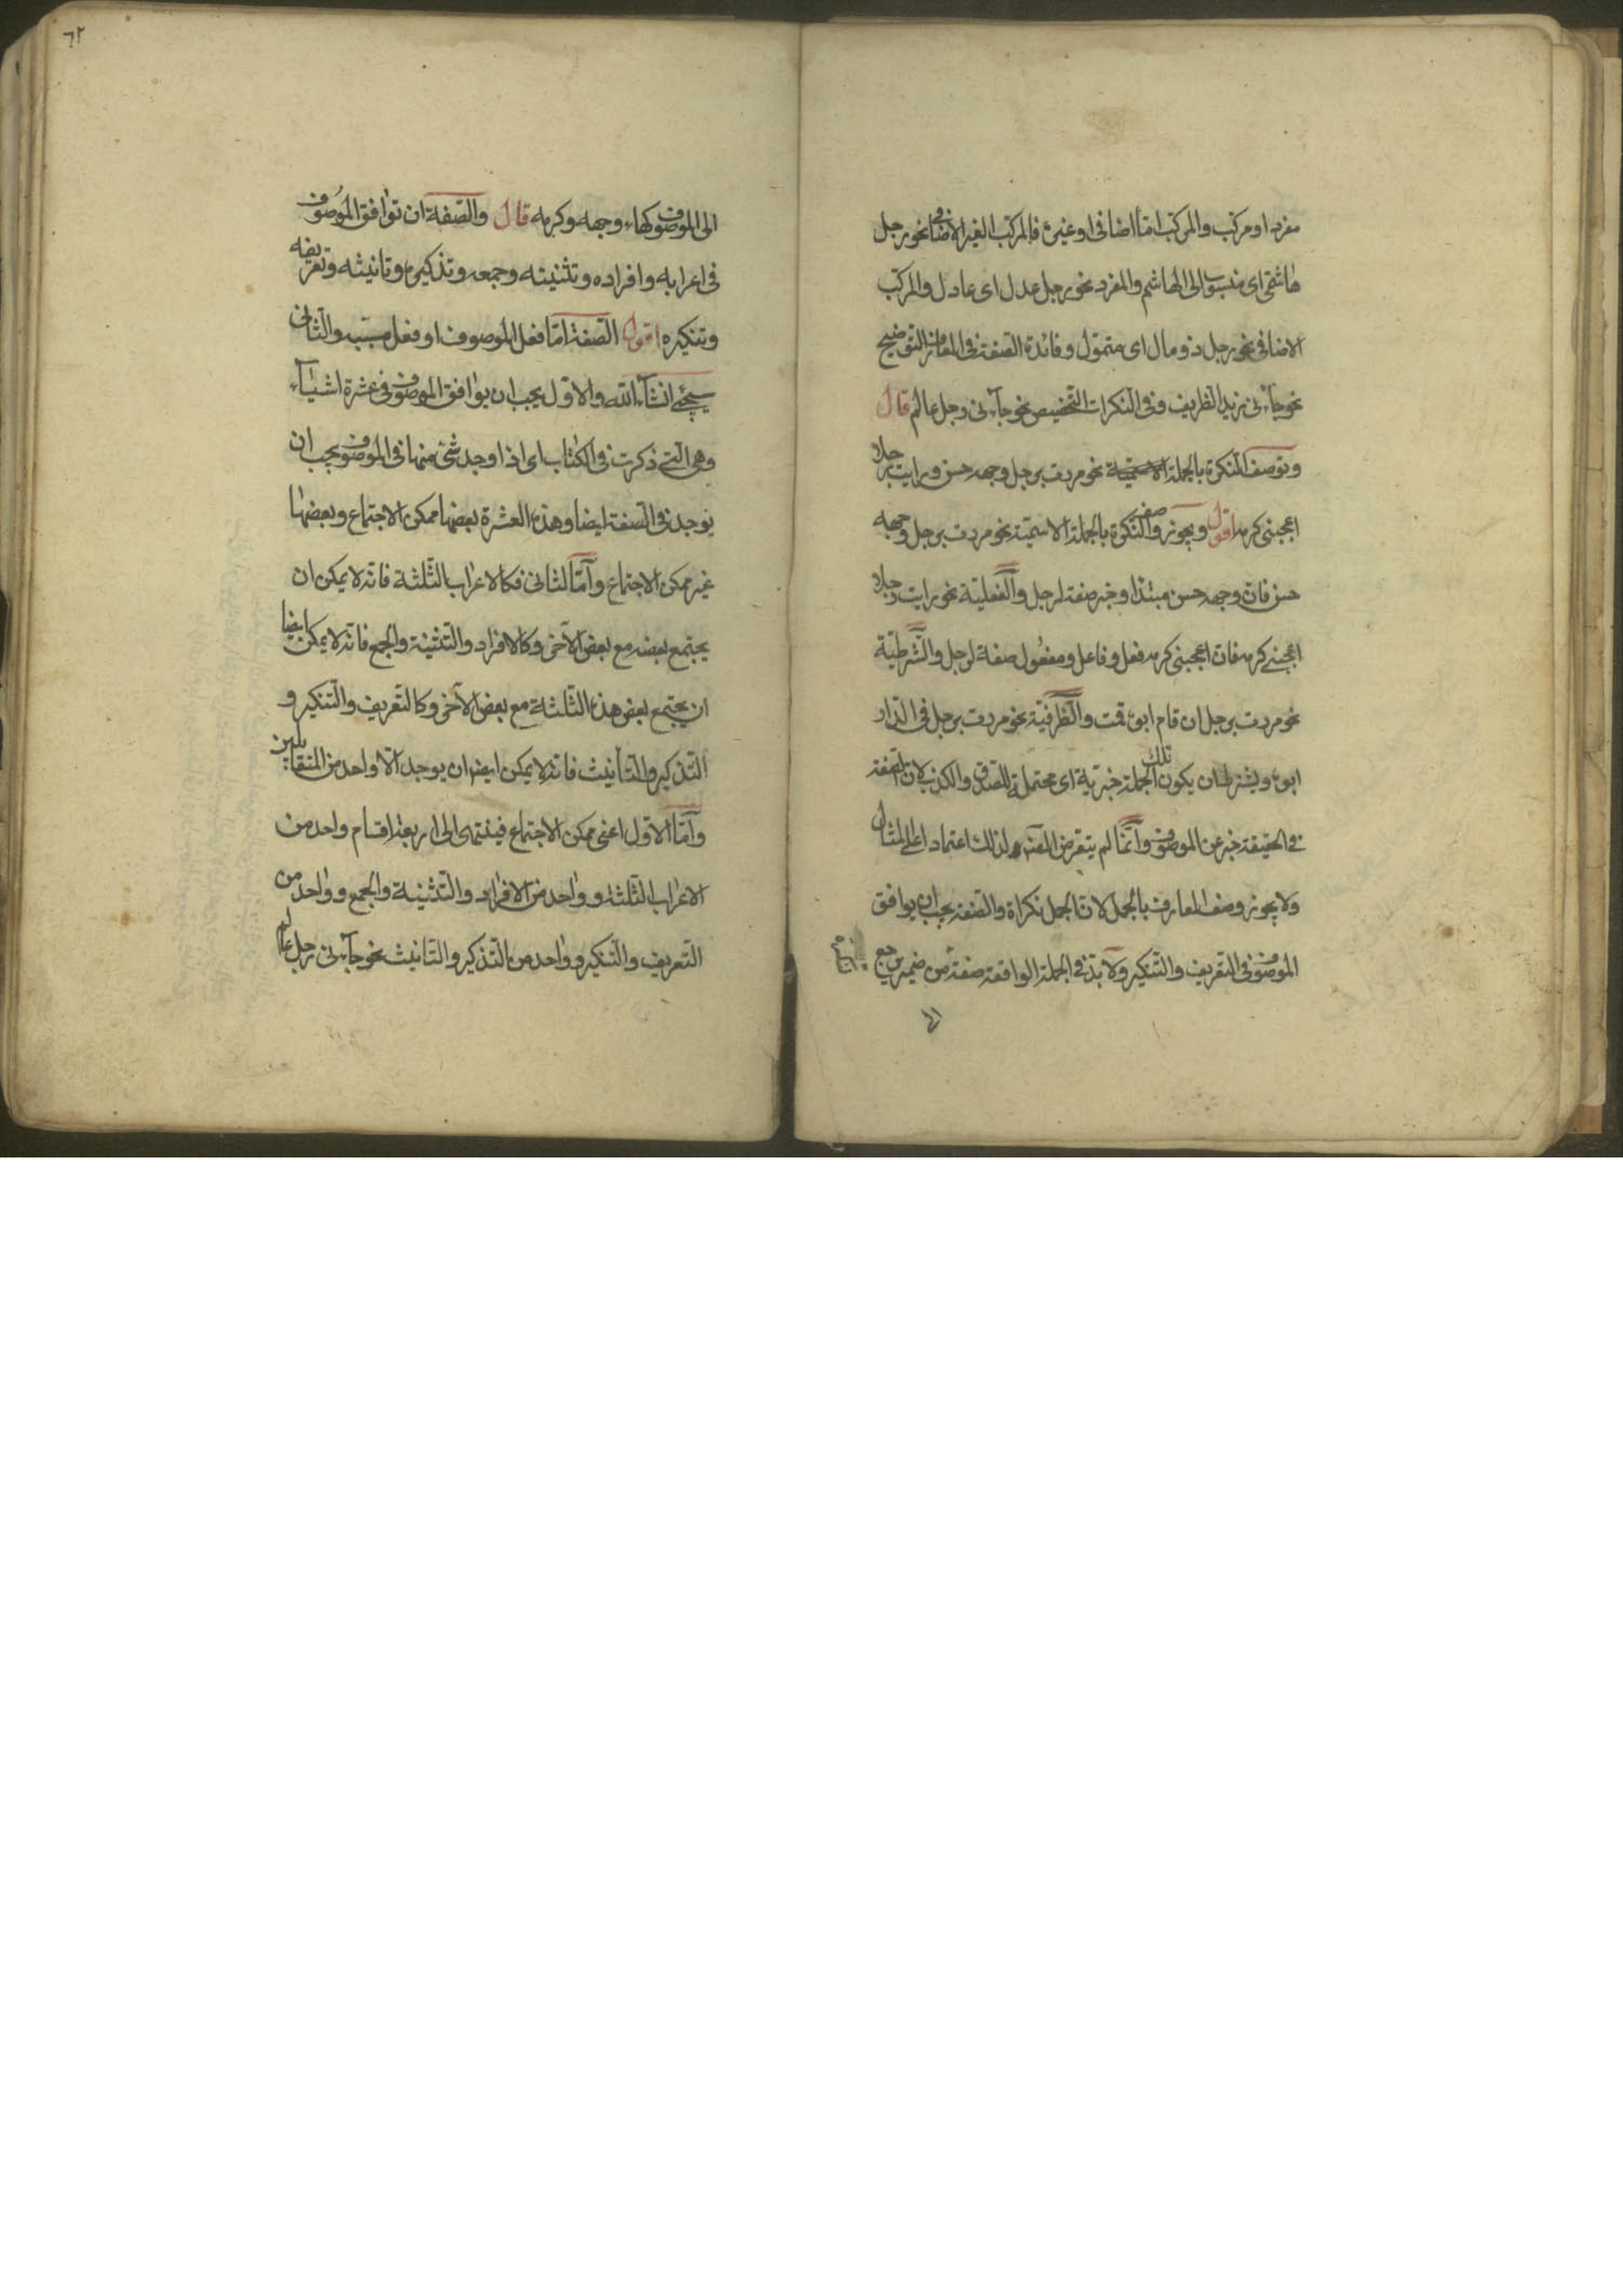 مفرد او مركب والمركب امّا اضافى او غيره فالمركب الغير الاضافى نحو رجل
هاشمّى اى منسوب الى الهاشم والمفرد نحو رجل عدل اى عادل والمركب
الاضافى نحو رجل ذو مال اى متموّل وفائدة الصّفة فى المعارف التوضيح
نحو جاءنى زيد الظريف وفى النكرات التخصيص نحو جاءنى رجل عالم قال
وتوصف النكرة بالجملة الاسميّة نحو مررت برجل وجهه حسن ورايت رجلا
اعجبنى كرمه اقول ويجوز وصف النّكرة بالجملة الاسميّة نحو مررت برجل وجهه
حسن فانّ وجهه حسن مبتدا وخبر صفة لرجل والفعليّة نحو رايت رجلا
اعجبنى كرمه فانّ اعجبنى كرمه فعل وفاعل ومفعول صفة لرجل والشّرطيّة
نحو مررت برجل ان قام ابوه قمت والظّرفيّة نحو مررت برجل فى الدّار
ابوه ويشترط ان يكون تلك الجملة خبريّة اى محتملة للصّدق والكذب لانّ الصّفة
فى الحقيقة خبر عن الموصوف وانّما لم يتعرض المصنّف لذلك اعتمادا على المثال
ولا يجوز وصف المعارف بالجمل لانّ الجمل نكراة والصّفة يجب ان يوافق
الموصوف فى التعريف والتّنكير ولا بدّ فى الجملة الواقعة صفة من ضمير يرجع
الى
٦٢
الى الموصوف كهاء وجهه وكرمه قال والصّفة ان توافق الموصوف
فى اعرابه وافراده وتثنيته وجمعه وتذكيره وتانيثه وتعريفه
وتنكيره اقول الصّفة امّا فعل الموصوف او فعل مسبّبه والثّانى
سيجئ انشاء الله والاوّل يجب ان يوافق الموصوف فى عشرة اشياء
وهى الّتى ذكرت فى الكتاب اى اذا وجد شئ منها فى الموصوف يجب ان
يوجد فى الصّفة ايضا وهذه العشرة بعضها ممكن الاجتماع وبعضها
غير ممكن الاجتماع وامّا الثانى فكالاعراب الثّلثة فانّه لا يمكن ان
يجتمع بعضه مع بعض الآخر وكالافراد والتّثنية والجمع فانّه لا يمكن ايضا
ان يجتمع بعض هذه الثّلثة مع بعض الآخر وكالتّعريف والتّنكير و
التّذكير والتّأنيث فانّه لا يمكن ايضا ان يوجد الّا واحد من المتقابلين
وامّا الاوّل اعنى ممكن الاجتماع فينتهى الى اربعة اقسام واحد من
الاعراب الثّلثة وواحد من الافراد والتّثنية والجمع وواحد من
التّعريف والتّنكير وواحد من التّذكير والتّانيث نحو جاءنى رجل عالم